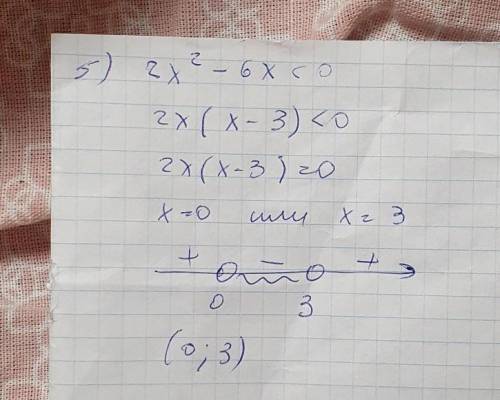 5) 2x² - 6x < 0
2x(x - 3) < 0
2x(x - 3) = 0
x = 0 или x = 3
+ − +
0 3
(0; 3)